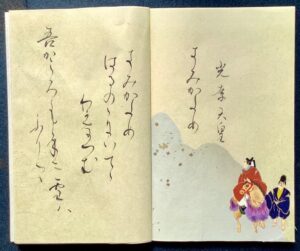 光孝天皇
きみかため
きみかため
はるのゝにいてゝ
わかなつむ
吾かころも手に雪ハ
ふりつゝ